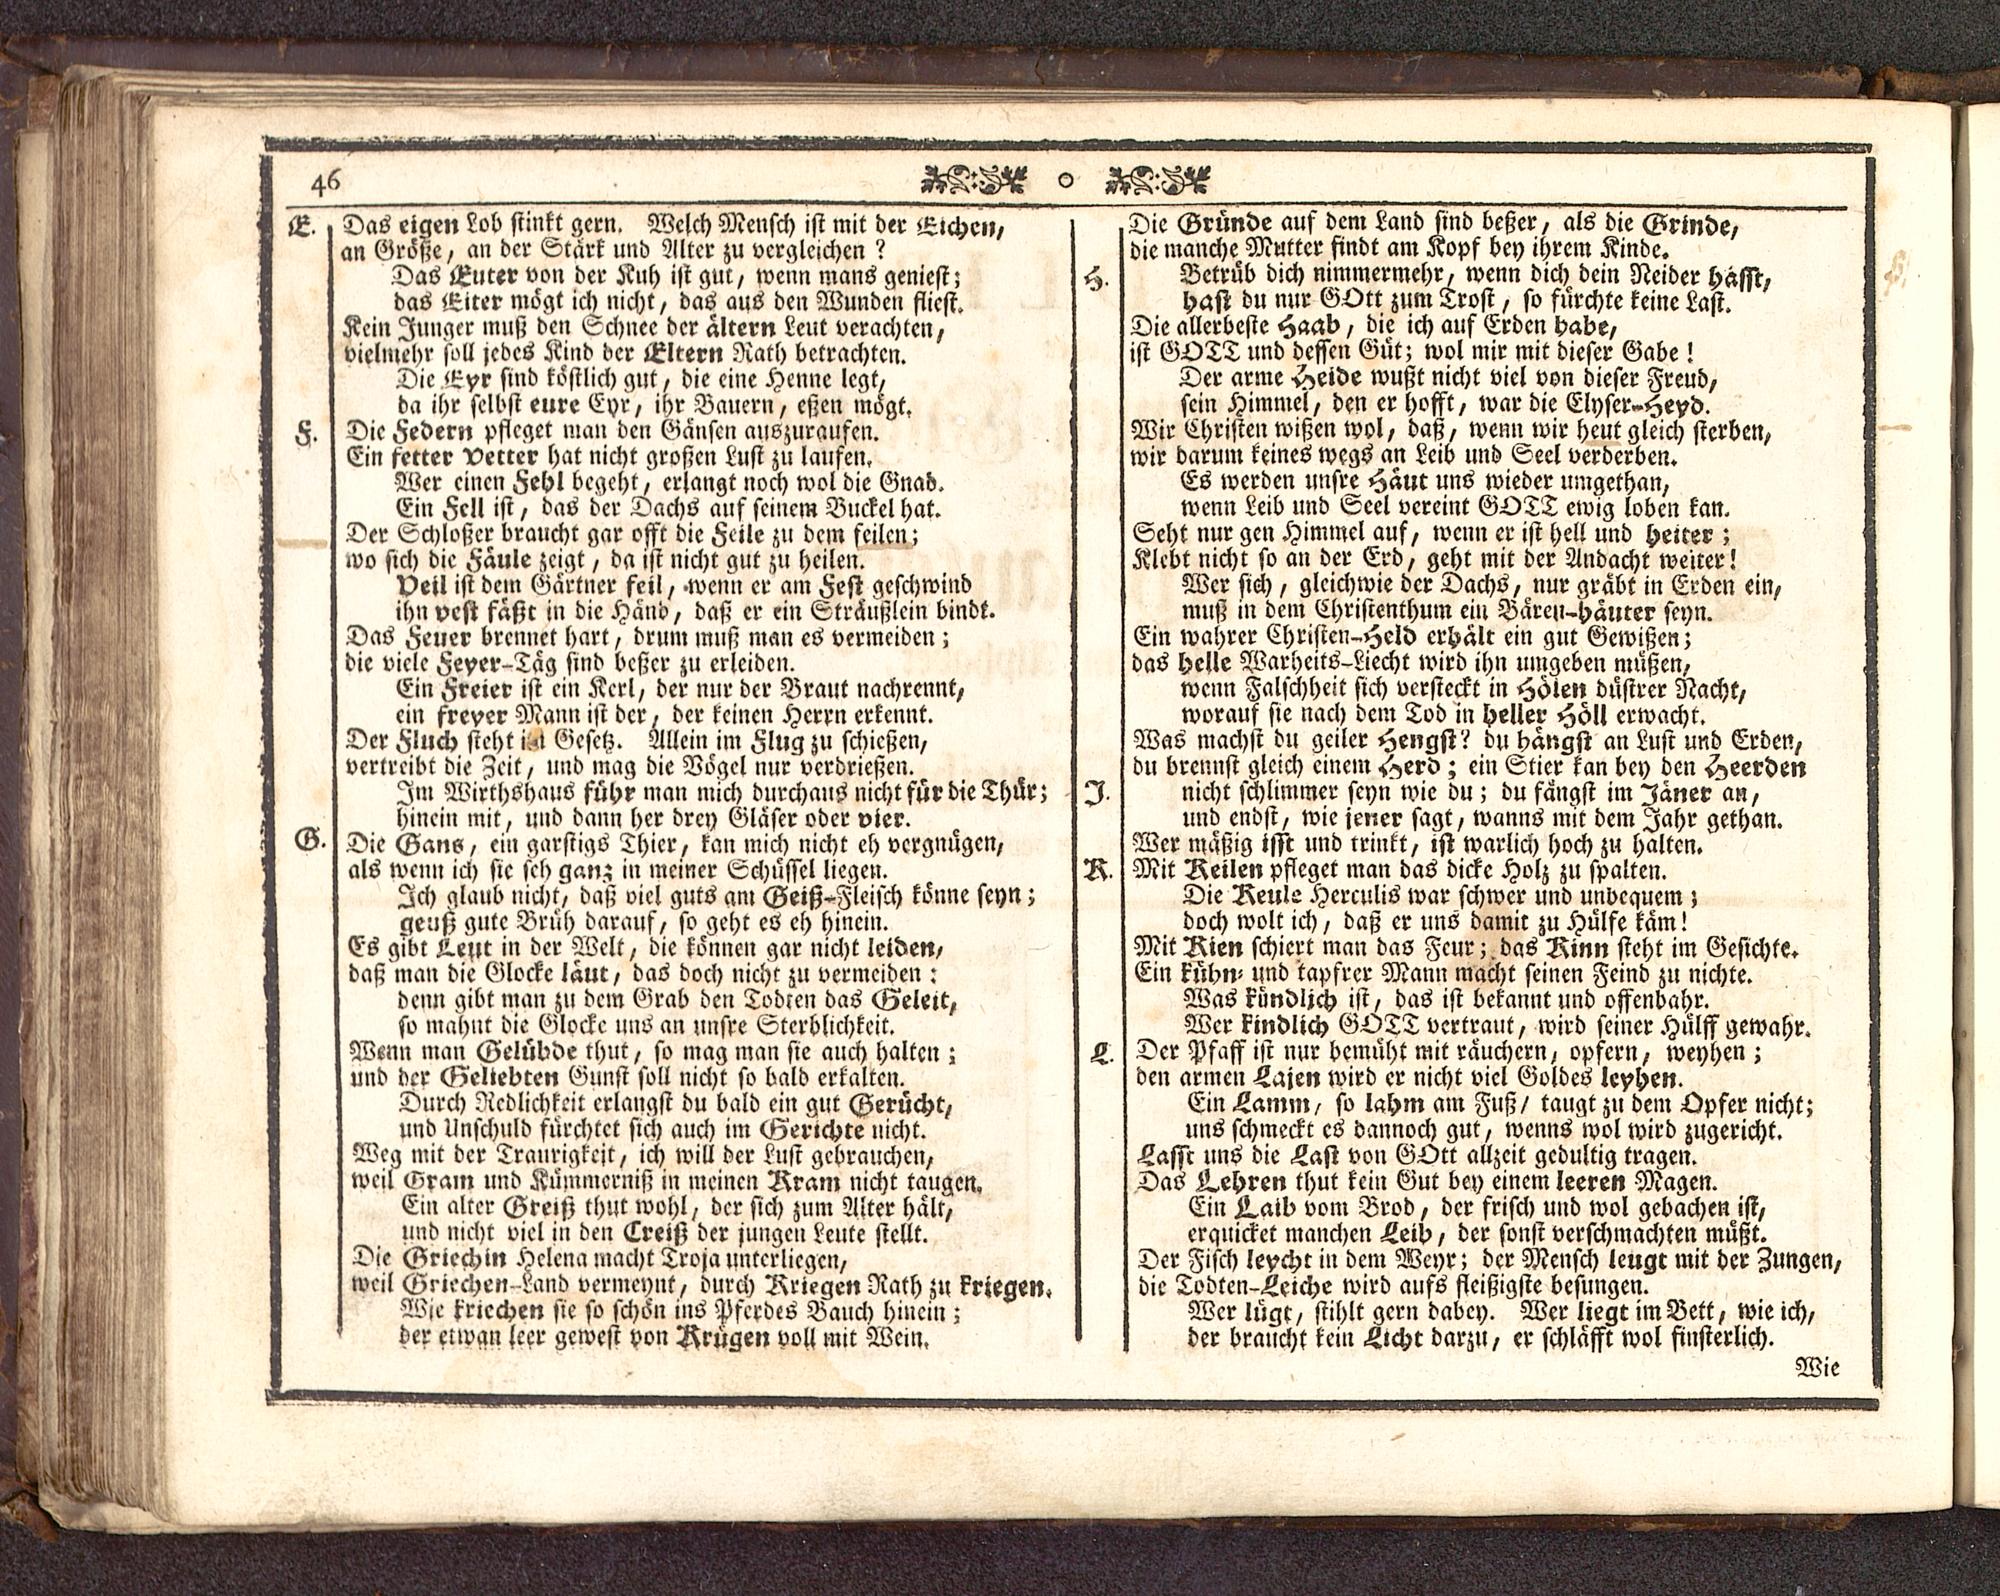 46
E. Das eigen Lob stinkt gern. Welch Mensch ist mit der Eichen,
an Größe, an der Stärk und Alter zu vergleichen?
Das Euter von der Kuh ist gut, wenn mans geniest;
das Eiter mögt ich nicht, das aus den Wunden fliest.
Kein Junger muß den Schnee der ältern Leut verachten,
vielmehr soll jedes Kind der Eltern Rath betrachten.
Die Eyr sind köstlich gut, die eine Henne legt,
da ihr selbst eure Eyr, ihr Bauern, eßen mögt.
F. Die Federn pfleget man den Gänsen auszuraufen.
Ein fetter Vetter hat nicht großen Lust zu laufen.
Wer einen Fehl begeht, erlangt noch wol die Gnad.
Ein Fell ist, das der Dachs auf seinem Buckel hat.
Der Schloßer braucht gar offt die Feile zu dem feilen;
wo sich die Fäule zeigt, da ist nicht gut zu heilen.
Veil ist dem Gärtner feil, wenn er am Fest geschwind
ihn vest fäßt in die Händ, daß er ein Sträußlein bindt.
Das Feuer brennet hart, drum muß man es vermeiden;
die viele Feyer-Täg sind beßer zu erleiden.
Ein Freier ist ein Kerl, der nur der Braut nachrennt,
ein freyer Mann ist der, der keinen Herrn erkennt.
Der Fluch steht im Gesetz. Allein im Flug zu schießen,
vertreibt die Zeit, und mag die Vögel nur verdrießen.
Im Wirthshaus führ man mich durchaus nicht für die Thür;
hinein mit, und dann her drey Gläser oder vier.
G. Die Gans, ein garstigs Thier, kan mich nicht eh vergnügen,
als wenn ich sie seh ganz in meiner Schüssel liegen.
Ich glaub nicht, daß viel guts am Geiß-Fleisch könne seyn;
geuß gute Brüh darauf, so geht es eh hinein.
Es gibt Leut in der Welt, die können gar nicht leiden,
daß man die Glocke läut, das doch nicht zu vermeiden:
denn gibt man zu dem Grab den Todten das Geleit,
so mahnt die Glocke uns an unsre Sterblichkeit.
Wenn man Gelübde thut, so mag man sie auch halten;
und der Geliebten Gunst soll nicht so bald erkalten.
Durch Redlichkeit erlangst du bald ein gut Gerücht,
und Unschuld fürchtet sich auch im Gerichte nicht.
Weg mit der Traurigkeit, ich will der Lust gebrauchen,
weil Gram und Kümmerniß in meinen Kram nicht taugen.
Ein alter Greiß thut wohl, der sich zum Alter hält,
und nicht viel in den Creiß der jungen Leute stellt.
Die Griechin Helena macht Troja unterliegen,
weil Griechen-Land vermeynt, durch Kriegen Rath zu kriegen.
Wie kriechen sie so schön ins Pferdes Bauch hinein;
der etwan leer gewest von Krügen voll mit Wein.
Die Gründe auf dem Land sind beßer, als die Grinde,
die manche Mutter findt am Kopf bey ihrem Kinde.
H. Betrüb dich nimmermehr, wenn dich dein Neider hasst,
hast du nur GOtt zum Trost, so fürchte keine Last.
Die allerbeste Haab, die ich auf Erden habe,
ist GOTT und dessen Güt; wol mir mit dieser Gabe!
Der arme Heide wußt nicht viel von dieser Freud,
sein Himmel, den er hofft, war die Elyser-Heyd.
Wir Christen wißen wol, daß, wenn wir heut gleich sterben,
wir darum keines wegs an Leib und Seel verderben.
Es werden unsre Häut uns wieder umgethan,
wenn Leib und Seel vereint GOTT ewig loben kan.
Seht nur gen Himmel auf, wenn er ist hell und heiter;
Klebt nicht so an der Erd, geht mit der Andacht weiter!
Wer sich, gleichwie der Dachs, nur gräbt in Erden ein,
muß in dem Christenthum ein Bären-häuter seyn.
Ein wahrer Christen-Held erhält ein gut Gewißen;
das helle Warheits-Liecht wird ihn umgeben müßen,
wenn Falschheit sich versteckt in Hölen düstrer Nacht,
worauf sie nach dem Tod in heller Höll erwacht.
Was machst du geiler Hengst? du hängst an Lust und Erden,
du brennst gleich einem Herd; ein Stier kan bey den Heerden
J. nicht schlimmer seyn wie du; du fängst im Jäner an,
und endst, wie jener sagt, wanns mit dem Jahr gethan.
Wer mäßig isst und trinkt, ist warlich hoch zu halten.
K. Mit Keilen pfleget man das dicke Holz zu spalten.
Die Keule Herculis war schwer und unbequem;
doch wolt ich, daß er uns damit zu Hülfe käm!
Mit Kien schiert man das Feur; das Kinn steht im Gesichte.
Ein kühn- und tapfrer Mann macht seinen Feind zu nichte.
Was kündlich ist, das ist bekannt und offenbahr.
Wer kindlich GOTT vertraut, wird seiner Hülff gewahr.
L. Der Pfaff ist nur bemüht mit räuchern, opfern, weyhen;
den armen Lajen wird er nicht viel Goldes leyhen.
Ein Lamm, so lahm am Fuß, taugt zu dem Opfer nicht;
uns schmeckt es dannoch gut, wenns wol wird zugericht.
Lasst uns die Last von GOtt allzeit gedultig tragen.
Das Lehren thut kein Gut bey einem leeren Magen.
Ein Laib vom Brod, der frisch und wol gebachen ist,
erquicket manchen Leib, der sonst verschmachten müßt.
Der Fisch leycht in dem Weyr; der Mensch leugt mit der Zungen,
die Todten-Leiche wird aufs fleißigste besungen.
Wer lügt, stihlt gern dabey. Wer liegt im Bett, wie ich,
der braucht kein Licht darzu, er schläfft wol finsterlich.
Wie